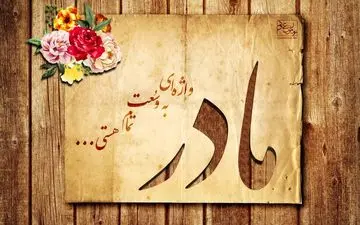 مادر
واژه‌ای
به وسعت
تمام هستی...